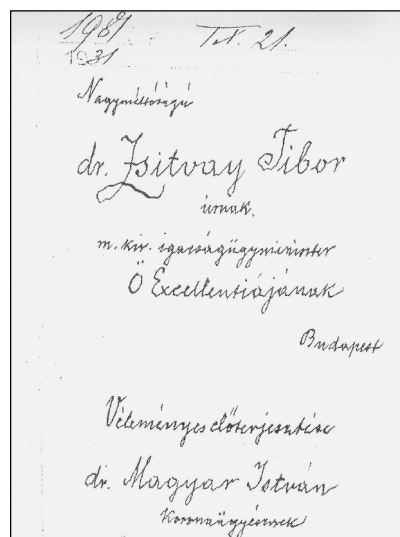 1981 IV. 21.
1931
Nagyméltóságú
dr. Zsitvay Tibor
úrnak.
m. kir. igazságügyminister
Ő Excellentiájának
Budapest
Véleményes előterjesztése
dr. Magyar István
Koronaügyésznek